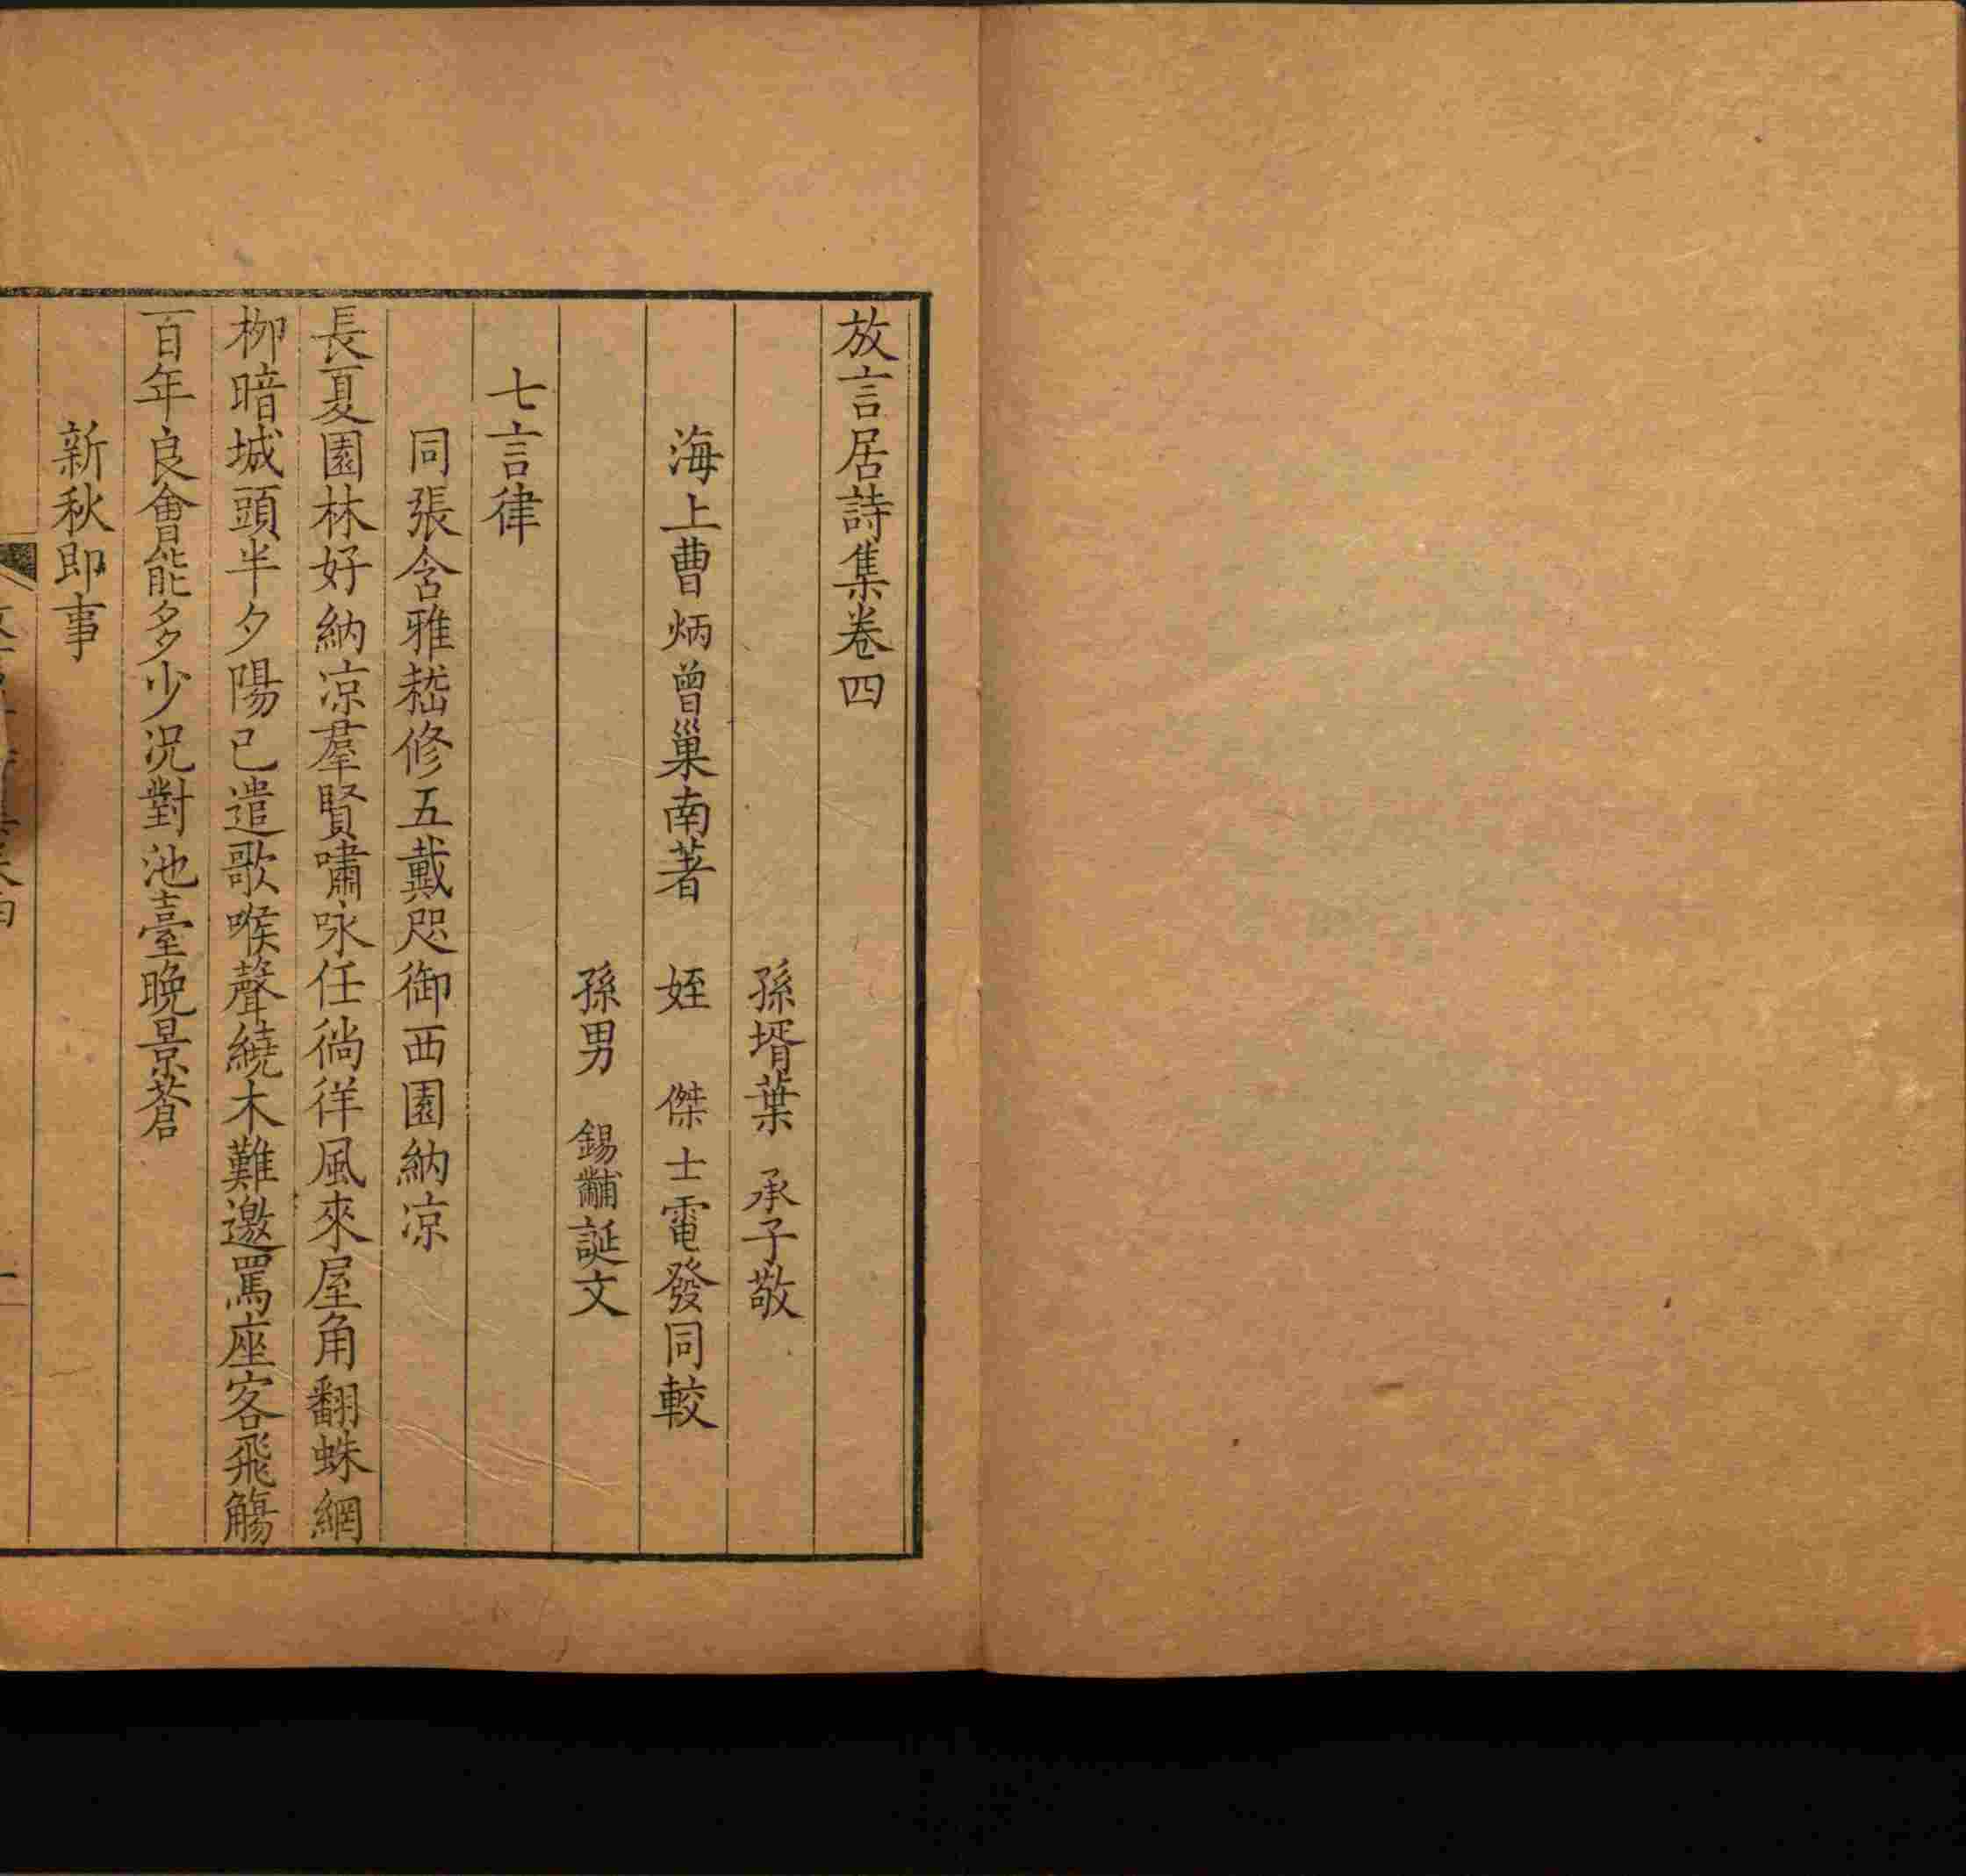 放言居詩集卷四
孫壻葉 承子敬
海上曹炳曾巢南著 姪 傑士電發同較
孫男 錫黼誕文
七言律
同張含雅嵇修五戴咫御西園納凉
長夏園林好納凉羣賢嘯咏任徜徉風來屋角翻蛛網
栁暗城頭半夕陽已遣歌喉聲繞木難邀罵座客飛觴
百年良會能多少况對池臺晩景蒼
新秋即事